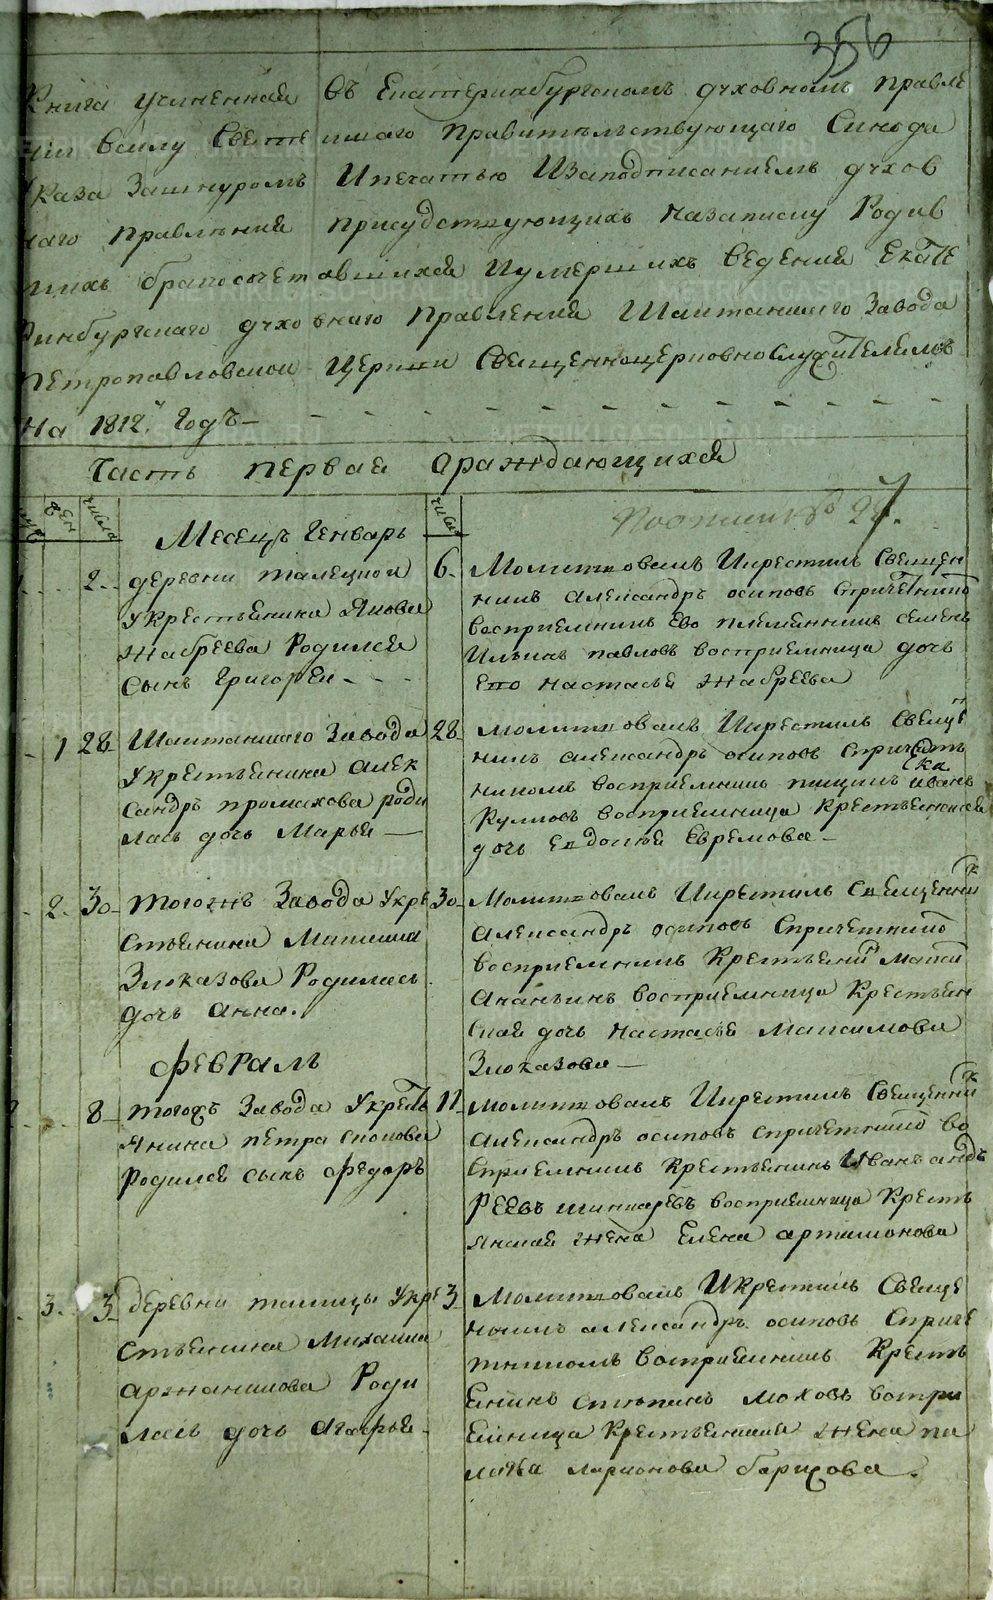 356
Книга учиненная въ Екатеринбургскомъ духовномъ правле
нии всилу Святе ишаго правительствующаго Синода
Указа Зашнуромъ Ипечатью Изаподписаниемъ духов
наго правлѣния присудствующихъ назаписку Родив
шихъ бракосочетавшихся Иумершихъ ведения Екате
ринбургскаго духовнаго правления Шайтанскаго Завода
Петропавловской Церкви Священноцерковнослужителемъ
На 1812й Годъ
Часть первая ораждающихся
числа
Месецъ Генварь
2 деревни талецкой
укрестьянина Якова
Жабреева Родился
сынъ Григорей
6 Молитвовалъ Икрестилъ Священ
никъ александръ осиповъ Спричетники
восприемникъ Ево племянникъ семенъ
Ильинъ павловъ восприемница дочь
Ево Настасья Жабреева
1 28 Шайтанскаго Завода
Укрестьянина алек
сандръ промахова роди
лась дочь Марья
28 молитвовалъ Икрестилъ Свяще
никъ александръ осиповъ спричетъ
никомъ восприемникъ иванъ
Куликовъ восприемница Крестьянская
дочь Евдокия Ефремова
2 30 тогожъ Завода Укре
стьянина Максима
Злоказова Родилась
дочь анна.
30 Молитвовалъ Икрестилъ Священник
александръ осиповъ Спричетники
восприемникъ Крестьянинъ
Ананьинъ восприемница Крестьян
ская дочь Настасья Максимова
Злоказова
февраль
8 тогожъ Завода Укресть
янина петра
Родился сынъ Федоръ
11 молитвовалъ Икрестилъ Священник
александръ осиповъ спричетники во
сприемникъ Крестьянинъ Иванъ анд
реевъ восприемница Кресть
янская жена Елена артамонова
3 3 деревни талицы Укре
стьянина Михаила
аржанникова Роди
лась дочь агафья
3 Молитвовалъ Икрестилъ Свяще
никъ александръ осиповъ Сприче
тникомъ восприемникъ Кресть
янинъ степанъ моховъ воспри
емница Крестьянская жена пе
лагея ларионова барихова.